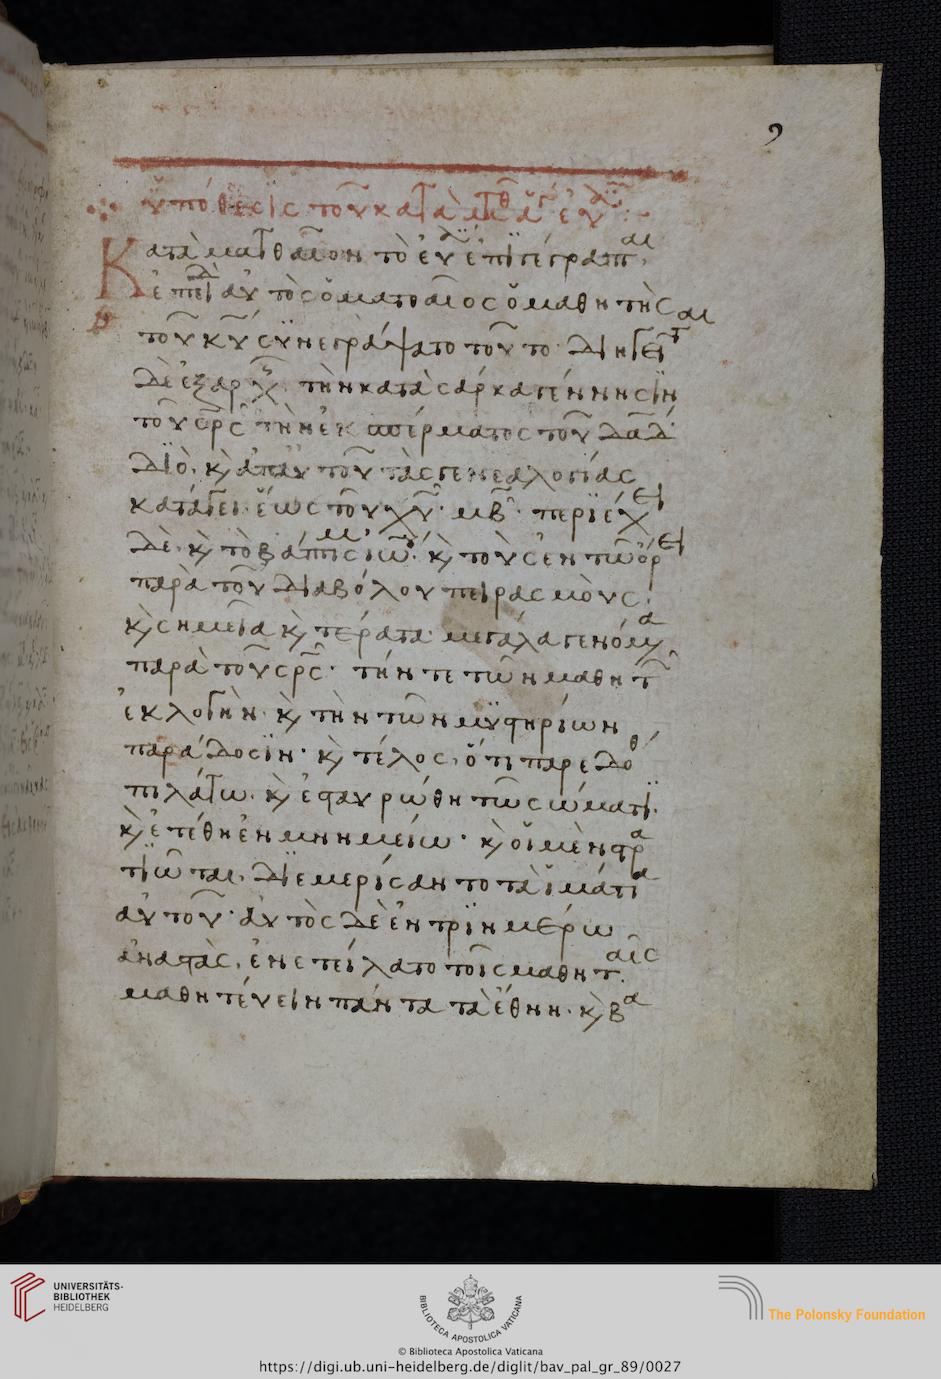 9
ὑπόθεσις τοῦ κατὰ ματθ ἁγ εὐα
Κατὰ ματθαῖον τὸ εὐα ἐπιγέγραπται
ἐπειδὴ αὐτὸς ὁ ματθαῖος ὁ μαθητὴς
τοῦ κυ συνεγράψατο τοῦτο· διηγεῖται
δὲ ἐξ ἀρχῆς τὴν κατὰ σάρκα γέννησιν
τοῦ σρς τὴν ἐκ σπέρματος τοῦ δαδ·
διὸ κ τοῦ τὰς γενεαλογίας
κατάγει ἕως τοῦ χυ· μβ· περιέχει
δὲ κ τὸ βάπτισμα ἰω· κ τοὺς ἐν τῶ ὄρει
παρὰ τοῦ διαβόλου πειρασμούς·
κ σημεῖα κ τέρατα μεγάλα γενόμενα
παρὰ τοῦ σρς· τήν τε τῶν μαθητ
ἐκλογήν· κ τὴν τῶν μυστηρίων
παράδοσιν· κ τέλος, ὅτι παρεδόθ
πιλάτω· κ ἐσταυρώθη τῶ σώματι·
κ ἐτέθη ἐν μνημείω· κ οἱ μὲν στρα
τιῶται διεμερίσαντο τὰ ἱμάτια
αὐτοῦ· αὐτὸς δὲ ἐν τριημέρω
ἀναστὰς, ἐνετείλατο τοῖς μαθηταῖς
μαθητεύειν πάντα τὰ ἔθνη· κ βα
UNIVERSITÄTS-
BIBLIOTHEK
HEIDELBERG
BIBLIOTECA APOSTOLICA VATICANA
The Polonsky Foundation
© Biblioteca Apostolica Vaticana
https://digi.ub.uni-heidelberg.de/diglit/bav_pal_gr_89/0027